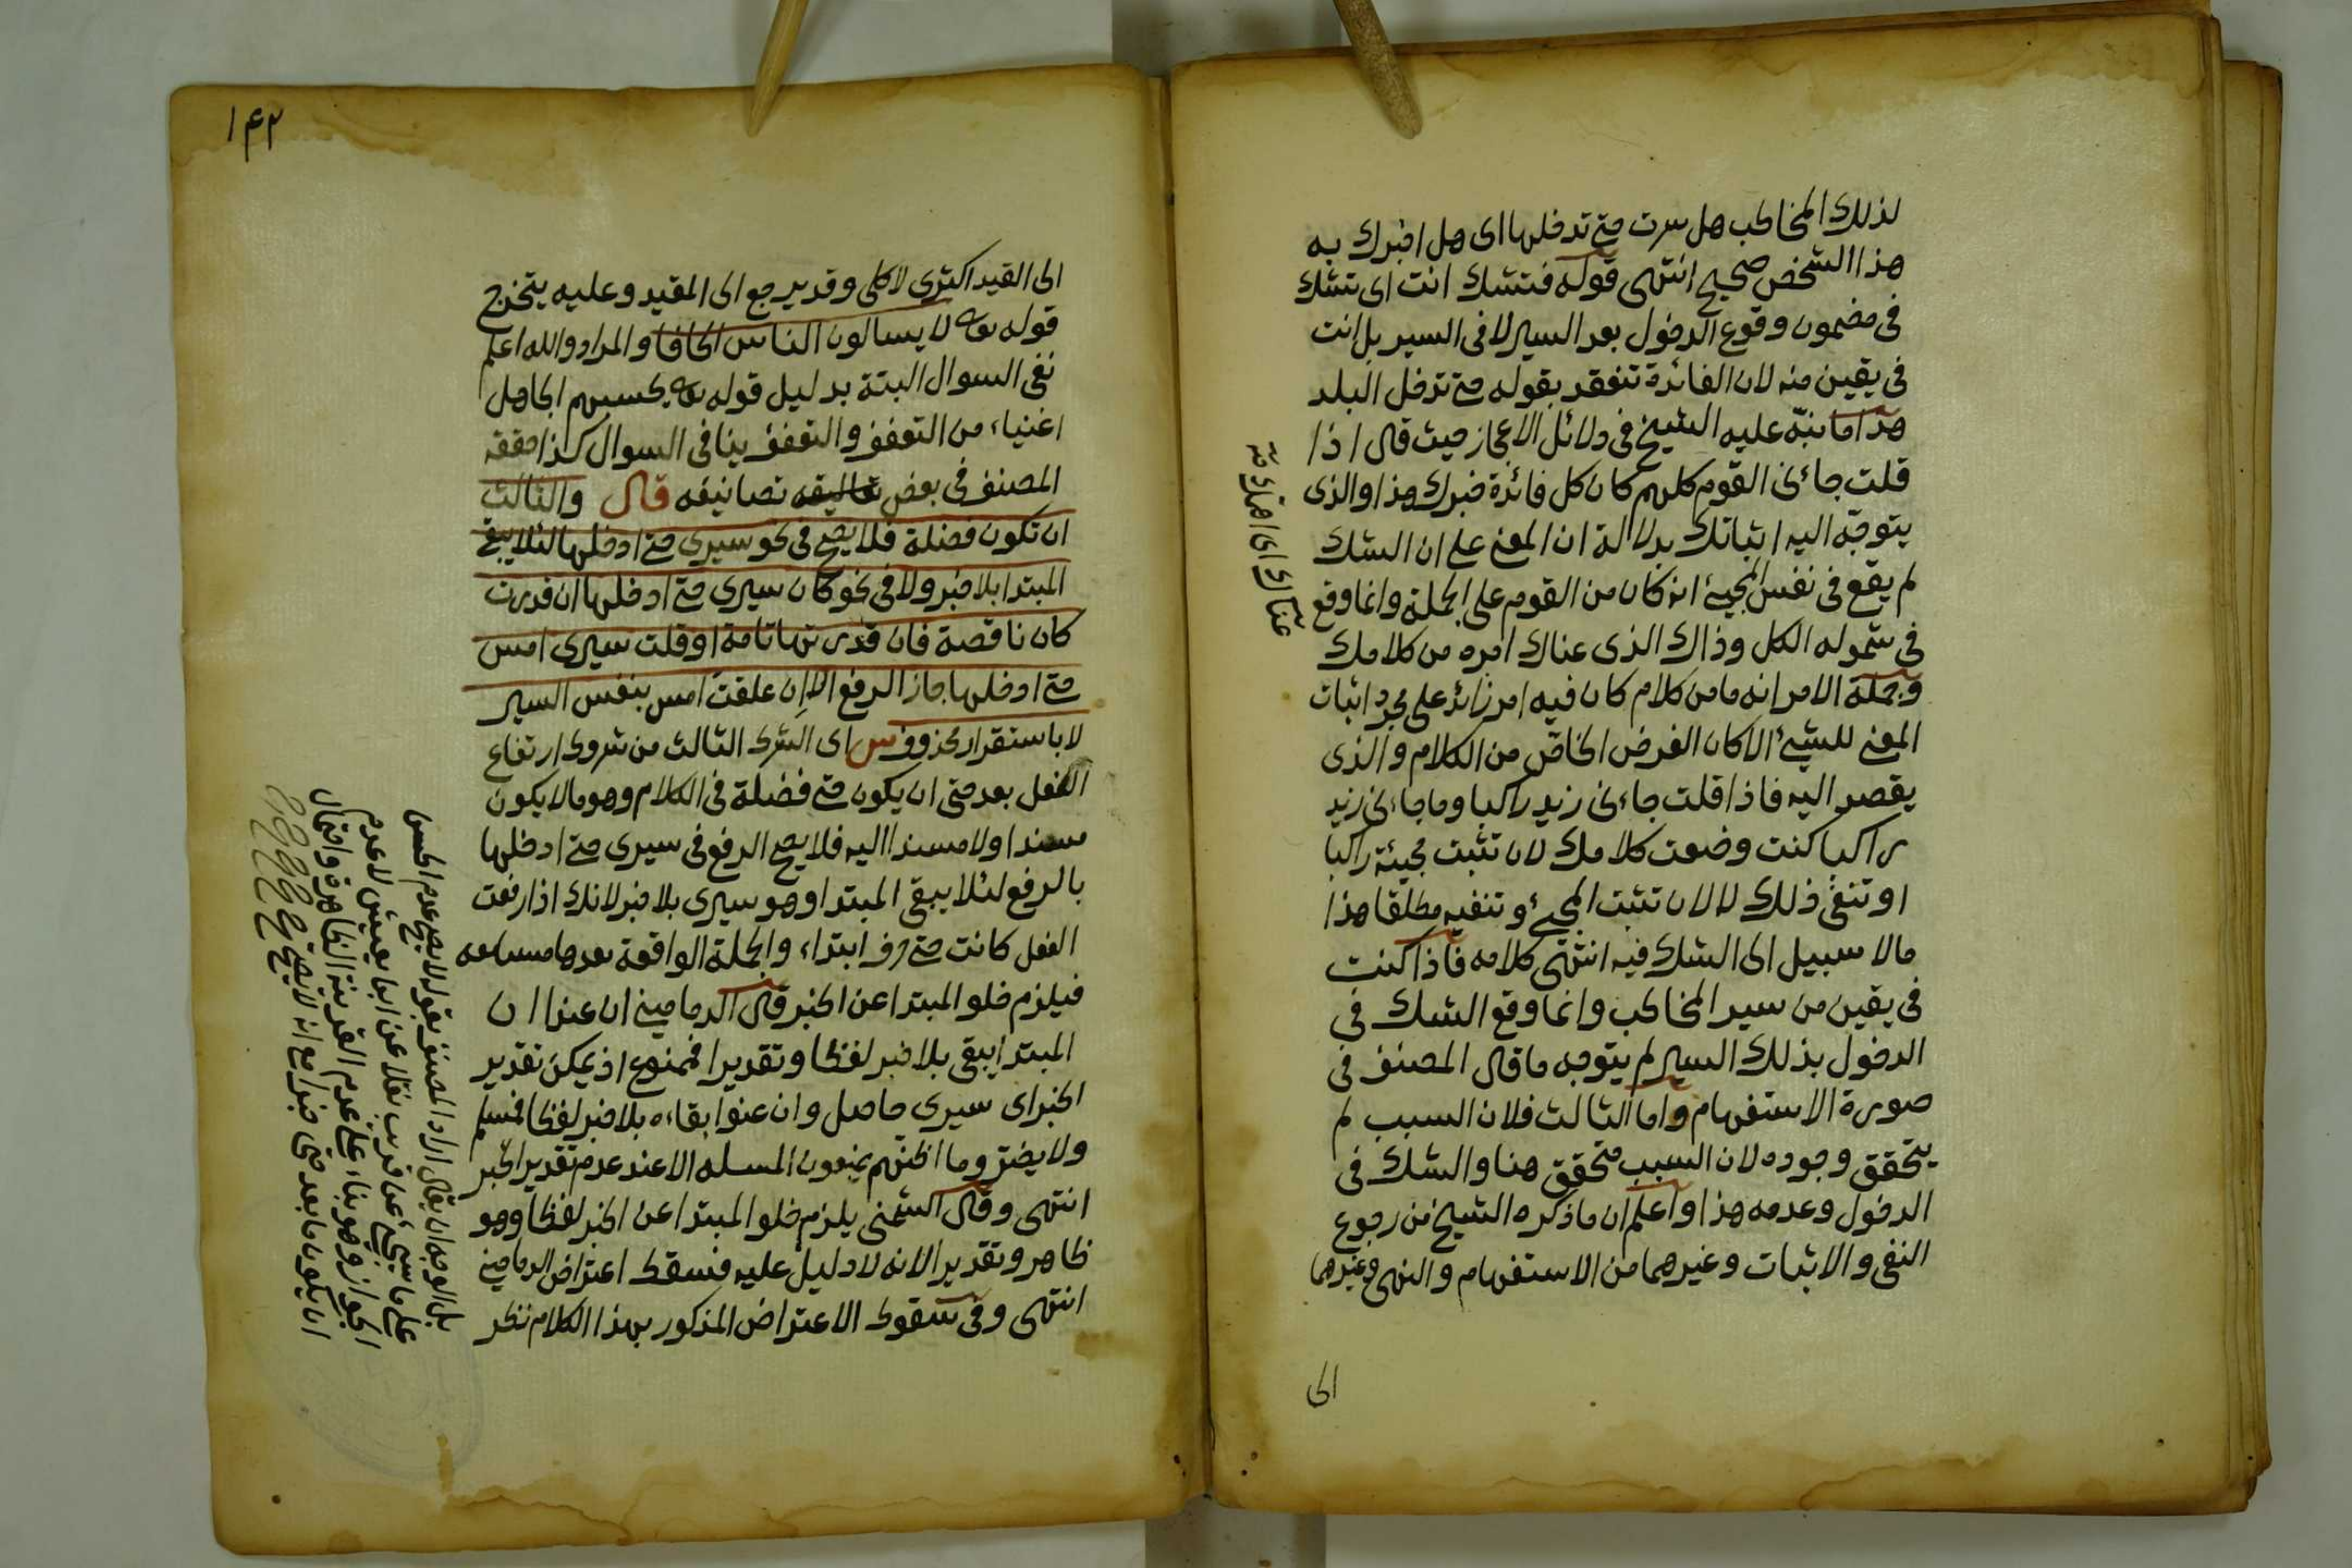 لذلك المخاطب هل سرت حتى تدخلها اى هل اخبرك به
هذا الشخص صحيح انتهى قوله فتشك انت اى تشك
فى مضمون وقوع الدخول بعد السير لا فى السير بل انت
فى يقين منه لان الفائدة تنعقد بقوله حتى تدخل البلد
هذا ما نبّه عليه الشيخ فى دلائل الاعجاز حيث قال اذا
قلت جائنى القوم كلهم كان كل فائدة خبرك هذا والذى
يتوجّه اليه اثباتك بدلالة ان المعنى على ان الشك
لم يقع فى نفس المجيئ انه كان من القوم على الجملة وانما وقع
فى شموله الكل وذاك الذى عناك امره من كلامك
وجملة الامر انه ما من كلام كان فيه امر زائد على مجرد اثبات
المعنى للشيئ الا كان الغرض الخاصّ من الكلام والذى
يقصد اليه فاذا قلت جاءنى زيد راكبا وما جاءنى زيد
راكبا كنت وضعت كلامك لان تثبت مجيئه راكبا
او تنفى ذلك لا لان تثبت المجيئ و تنفيه مطلقا هذا
مالا سبيل الى الشك فيه انتهى كلامه فاذا كنت
فى يقين من سير المخاطب وانما وقع الشك فى
الدخول بذلك السير لم يتوجه ما قال المصنف فى
صورة الاستفهام واما الثالث فلان السبب لم
يتحقق وجوده لان السبب متحقق هنا والشك فى
الدخول وعدمه هذا واعلم ان ما ذكره الشيخ من رجوع
النفى والاثبات وغيرهما من الاستفهام والنهى وغيرهما
الى
عناك اى اهمك
١۴٢
الى القيد اكثرى لا كلى وقد يرجع الى المقيد وعليه يتخرج
قوله تعالى لا يسالون الناس الحافا والمراد والله اعلم
نفى السوال البتة بدليل قوله تعالى يحسبهم الجاهل
اغنياء من التعفف والتعفف ينافى السوال كذا حققه
المصنف فى بعض تعاليقه تصانيفه قال والثالث
ان تكون فضلة فلا يصح فى نحو سيرى حتى ادخلها لئلا يبقى
المبتدا بلا خبر ولا فى نحو كان سيرى حتى ادخلها ان قدرت
كان ناقصة فان قدرتها تامة او قلت سيرى امس
حتى ادخلها جاز الرفع الا ان علقت امس بنفس السير
لا باستقرار محذوف ش اى الشرط الثالث من شروط ارتفاع
الفعل بعد حتى ان يكون حتى فضلة فى الكلام وهو مالا يكون
مسندا ولا مسندا اليه فلا يصح الرفع فى سيرى حتى ادخلها
بالرفع لئلا يبقى المبتدا وهو سيرى بلا خبر لانك اذا رفعت
الفعل كانت حتى حرف ابتداء والجملة الواقعة بعدها مستانفة
فيلزم خلو المبتدا عن الخبر قال الدمامينى ان عنى ان
المبتدا يبقى بلا خبر لفظا وتقديرا فممنوع اذ يمكن تقدير
الخبر اى سيرى حاصل وان عنوا بقاءه بلا خبر لفظا فمسلم
ولا يضر وما اظنهم يمنعون المسله الا عند عدم تقدير الخبر
انتهى وقال الشمنى يلزم خلو المبتدا عن الخبر لفظا وهو
ظاهر وتقديرا لانه لا دليل عليه فسقط اعتراض الدمامينى
انتهى وفى سقوط الاعتراض المذكور بهذا الكلام نظر
بل الوجه ان يقال اراد المصنف بقوله لا يصح عدم الحسن
على ما سيجيئ عن قريب نقلا عن ابن يعيش لا عدم
الجواز وهو بناء على عدم القرينة الظاهرة واحتمال
ان يكون ما بعد حتى خبرا مع انه لا يصح